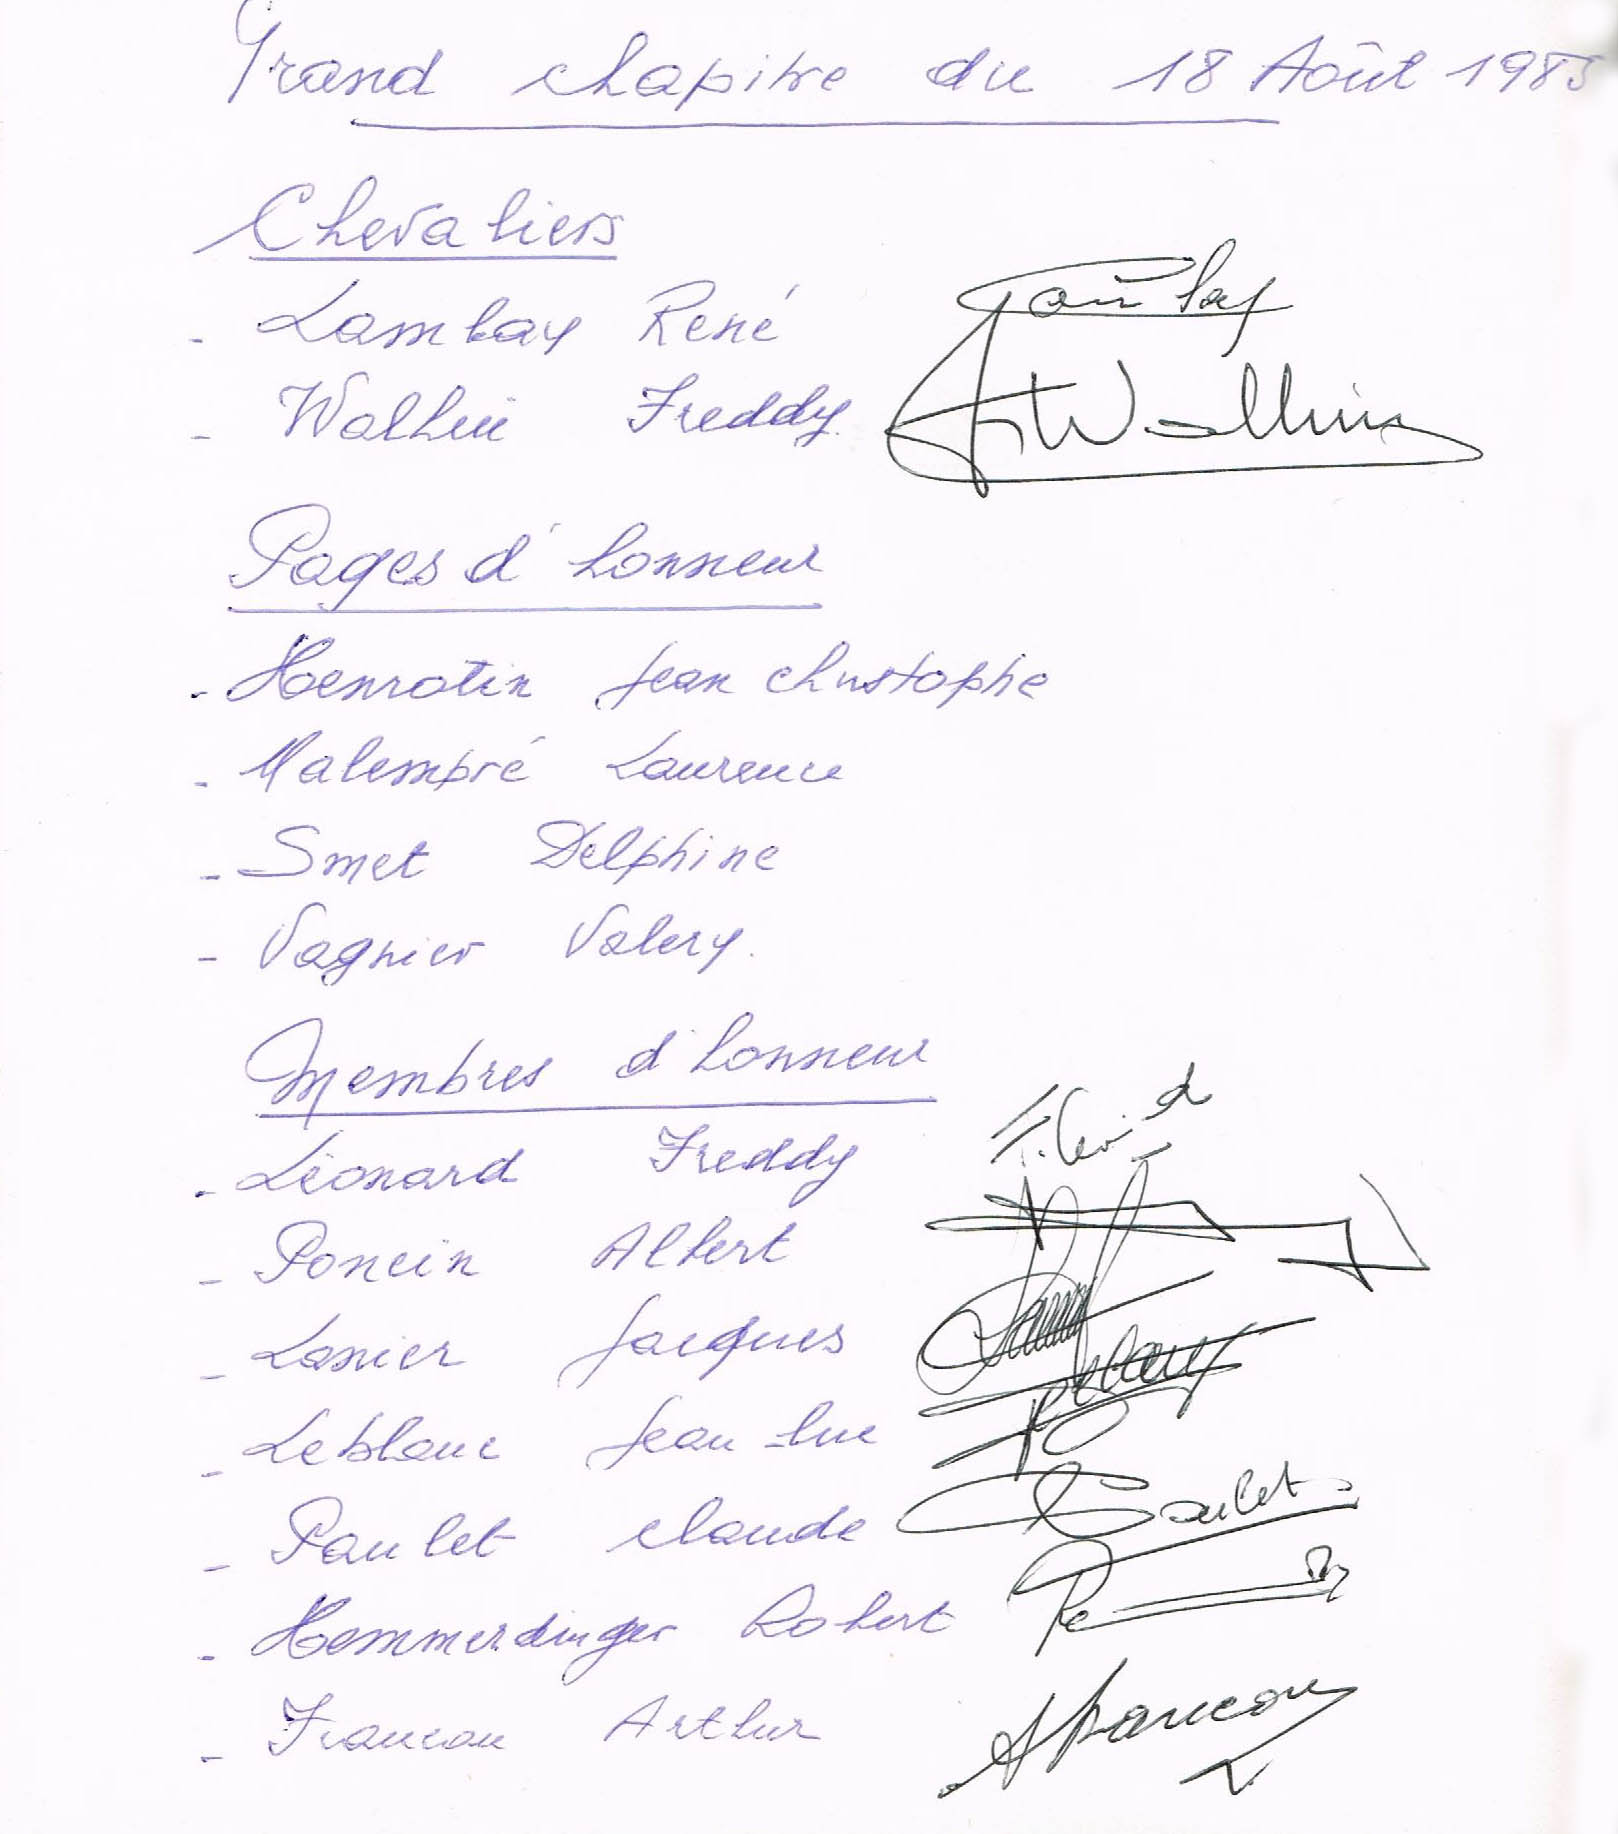 Grand chapitre du 18 Août 1985
Chevaliers
- Lambay René
- Wathui Freddy.
Pages d'honneur
- Henrotin Jean Christophe
- Malempré Laurence
- Smet Delphine
- Vagnier Valery.
Membres d'honneur
- Léonard Freddy
- Poncin Albert
- Lanier Jacques
- Leblanc Jean-Luc
- Paulet Claude Paulet
- Hemmerdinger Robert
- Francou Arthur A Francou